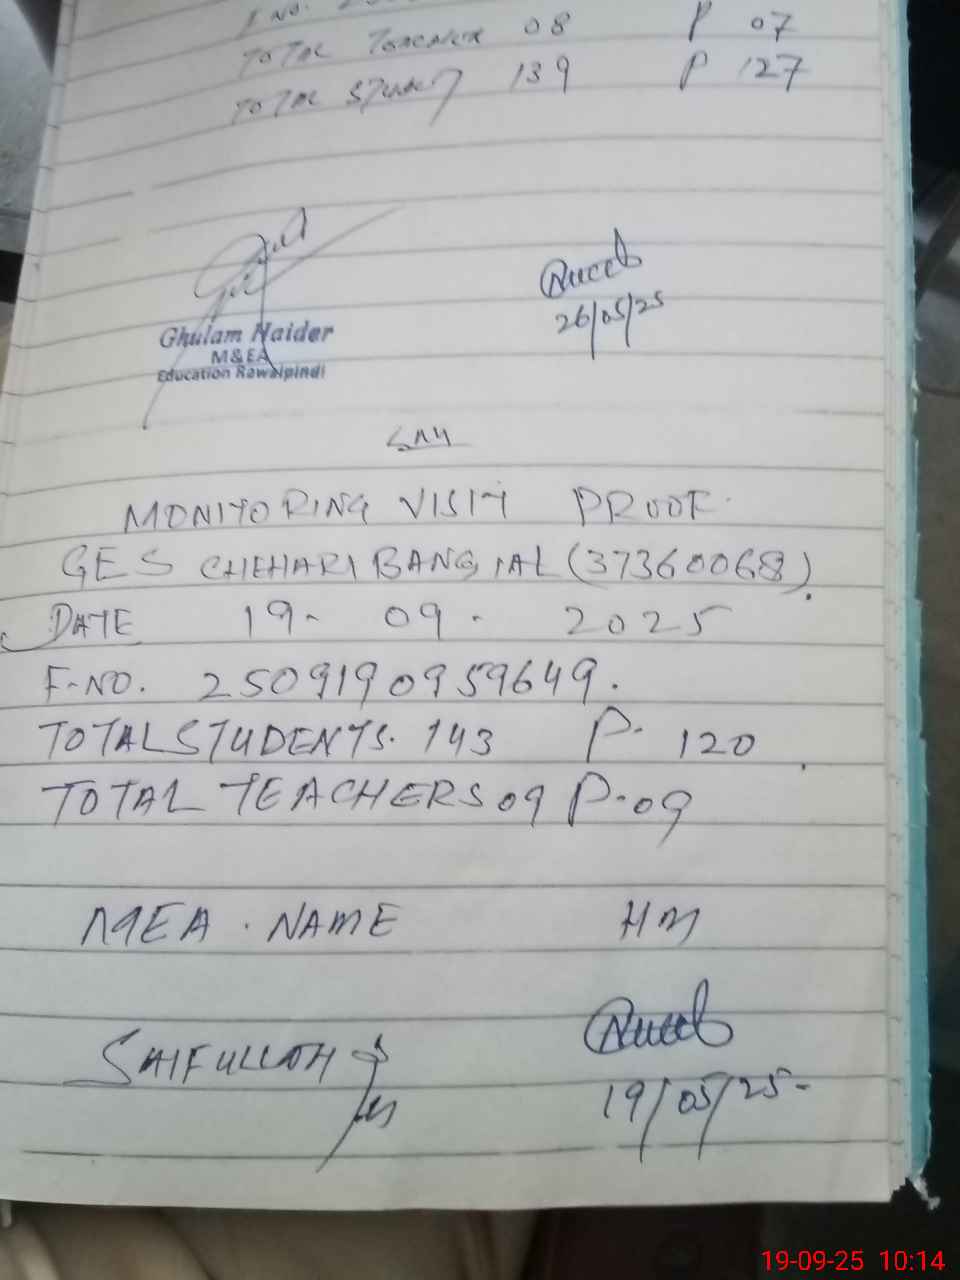 TOTAL TEACHER 08 P 07
TOTAL STUDENT 139 P 127
Ghulam Haider
M&EA
Education Rawalpindi
26/05/25
MONITORING VISIT PROOF
GES CHEHARI BANGIAL (37360068).
DATE 19- 09- 2025
F-NO. 2509190959649.
TOTAL STUDENTS. 143 P. 120
TOTAL TEACHERS 09 P-09
MEA. NAME HM
SAIFULLAH
19/05/25-
19-09-25 10:14